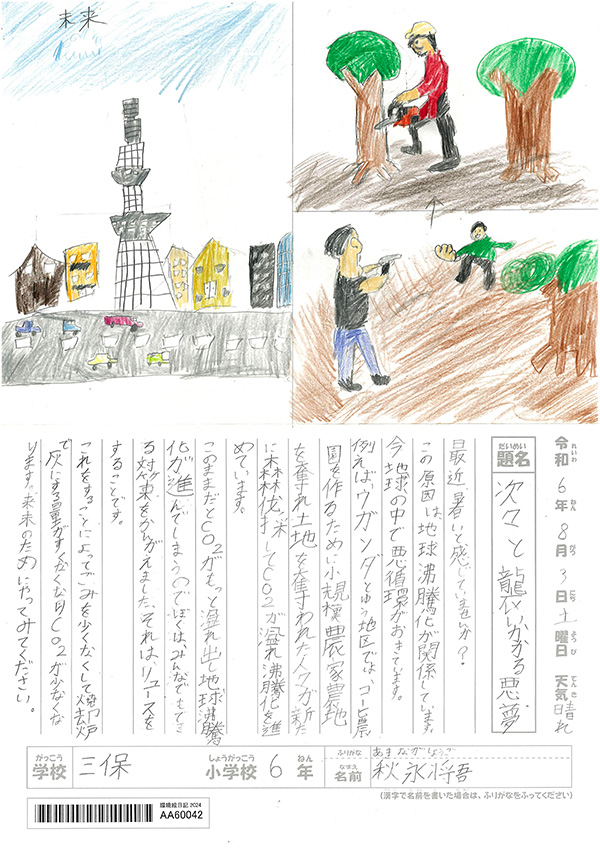 未来
令和6年8月3日土曜日 天気晴れ
れいわ ねん がつ にち ようび てんき
だいめい
題名 次々と襲いかかる悪夢
最近、暑いと感じていまいか?
この原因は地球沸騰化が関係しています。
今地球の中で悪循環がおきています。
例えば、ウガンダとゆう地区では、コーヒー農
園を作るために小規模農家農地
を奪れ土地を奪われた人々が新た
に森林伐採してCO2が溢れ沸騰化を進
めています。
このままだとCO2がもっと溢れ出し地球沸騰
化が進んでしまうのでぼくは、みんなでもでき
る対策をかんがえました、それは、リユースを
することです。
これをすることによってごみを少なくして焼却炉
で灰にする量がすくなくなりCO2が少なくな
ります。未来のためにやってみてください。
がっこう しょうがっこう ねん ふりがな
学校 三保 小学校 6年
なまえ
名前 秋永将吾
(漢字で名前を書いた場合は、ふりがなをふってください)
環境絵日記 2024
AA60042